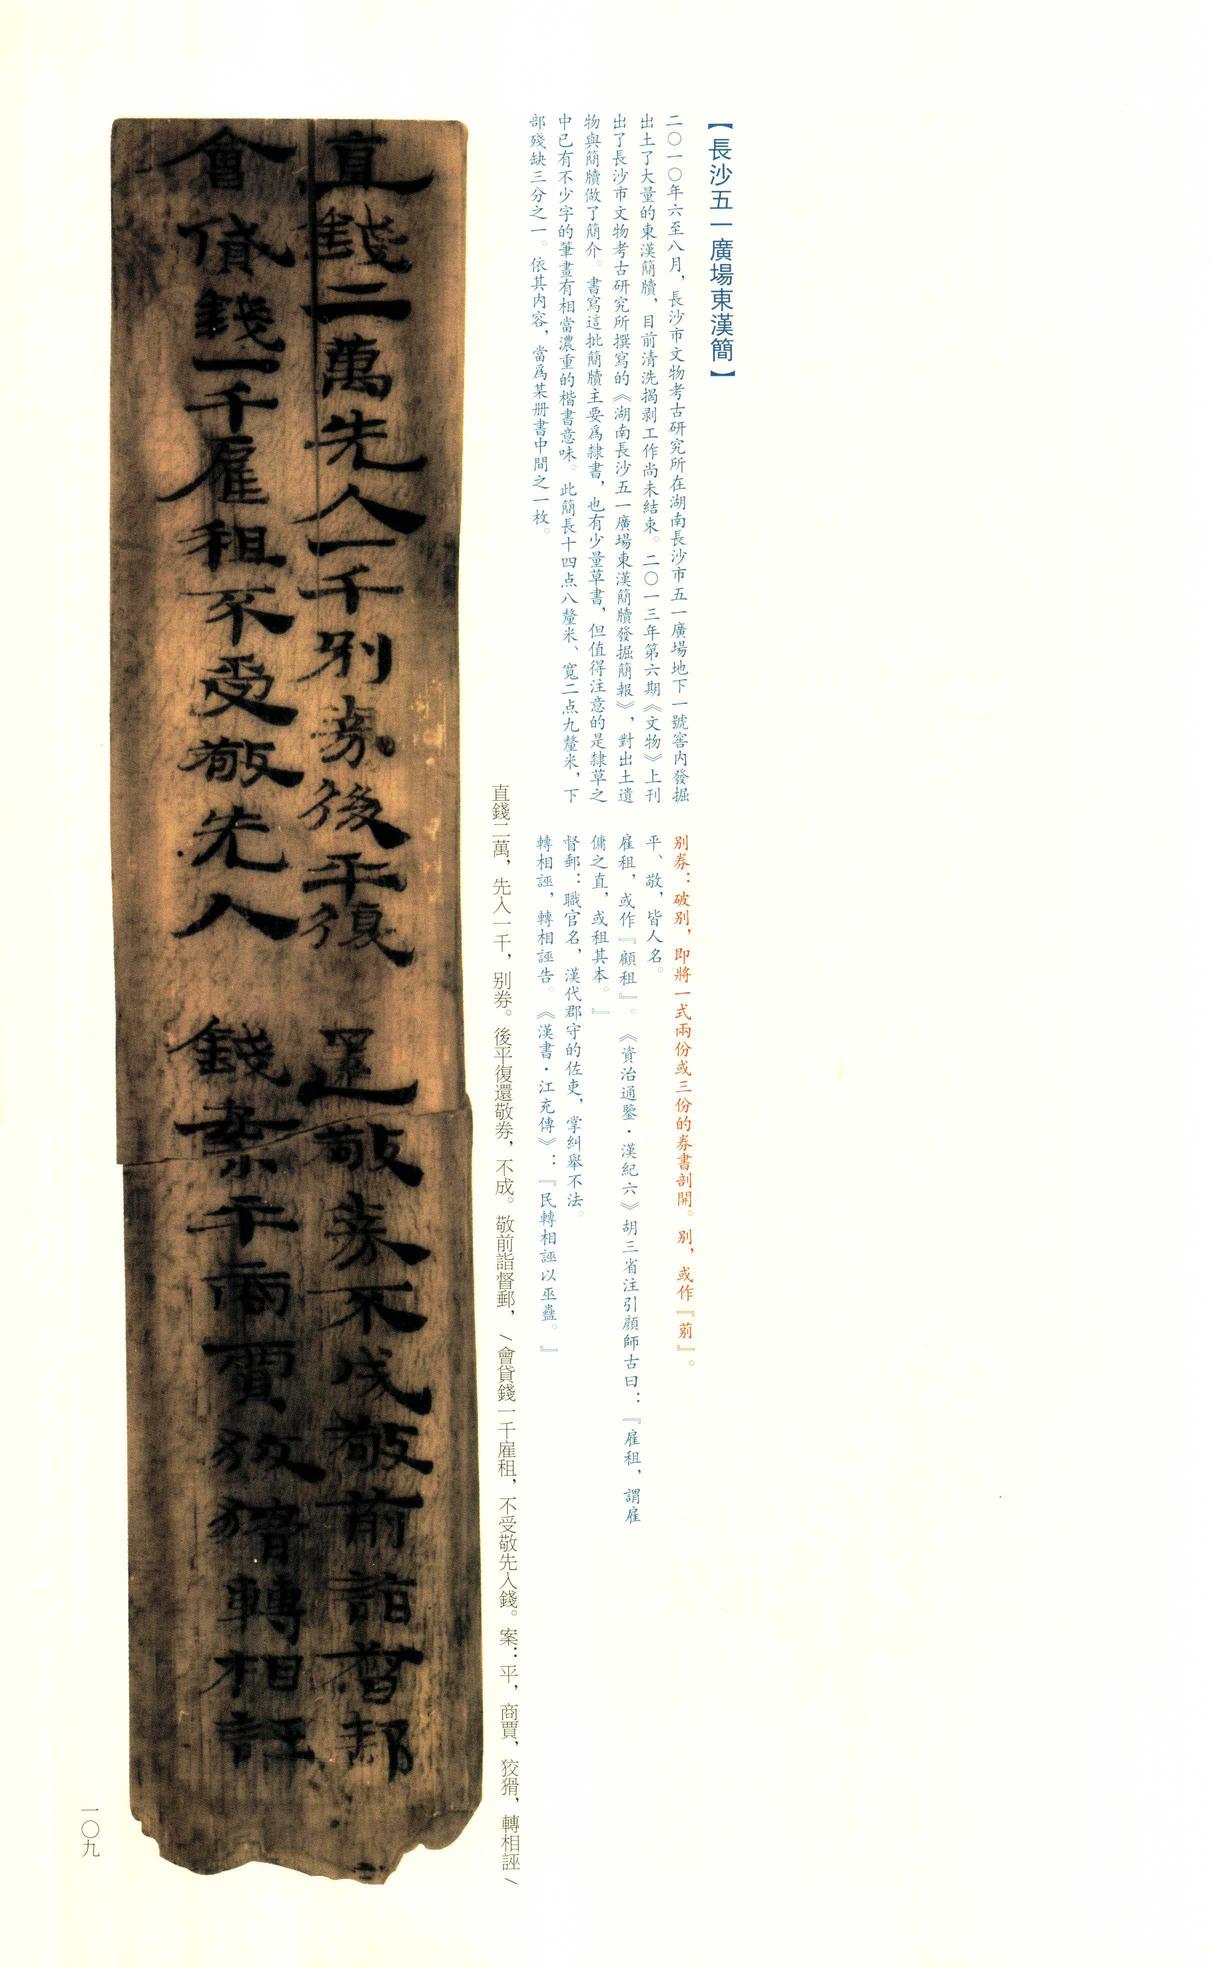 【長沙五一廣場東漢簡】
二〇一〇年六至八月，長沙市文物考古研究所在湖南長沙市五一廣場地下一號窖内發掘
出土了大量的東漢簡牘，目前清洗揭剥工作尚未結束。二〇一三年第六期《文物》上刊
出了長沙市文物考古研究所撰寫的《湖南長沙五一廣場東漢簡牘發掘簡報》，對出土遺
物與簡牘做了簡介。書寫這批簡牘主要爲隸書，也有少量草書，但值得注意的是隸草之
中已有不少字的筆畫有相當濃重的楷書意味。此簡長十四点八釐米、寬二点九釐米，下
部殘缺三分之一。依其内容，當爲某册書中間之一枚。
别券：破别，即將一式兩份或三份的券書剖開。别，或作『莂』。
平、敬，皆人名。
雇租，或作『顧租』。《資治通鑒·漢紀六》胡三省注引顔師古曰：『雇租，謂雇
傭之直，或租其本。』
督郵：職官名，漢代郡守的佐吏，掌糾舉不法。
轉相誣，轉相誣告。《漢書·江充傳》：『民轉相誣以巫蠱。』
直錢二萬，先入一千，别券。後平復還敬券，不成。敬前詣督郵，/會貸錢一千雇租，不受敬先入錢。案：平，商賈，狡猾，轉相誣/
直錢二萬先入一千别券後平復 還敬券不成敬前詣督郵
會貸錢一千雇租不受敬先入 錢案平商賈狡猾轉相誣
一〇九